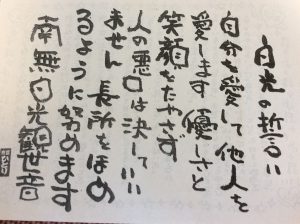 白光の誓い
自分を愛して他人を
愛します 優しさと
笑顔をたやさず
人の悪口は決していい
ません 長所をほめ
るように努めます
南無白光観世音